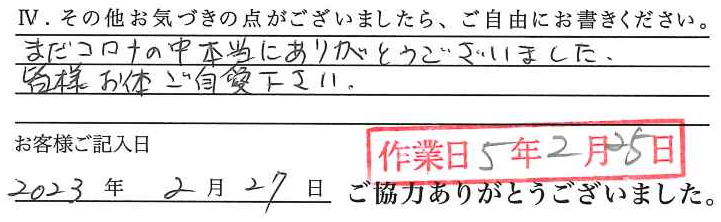 Ⅳ．その他お気づきの点がございましたら、ご自由にお書きください。
まだコロナの中本当にありがとうございました、
皆様お体ご自愛下さい．
お客様ご記入日
作業日5年2月25日
2023年2月27日
ご協力ありがとうございました。